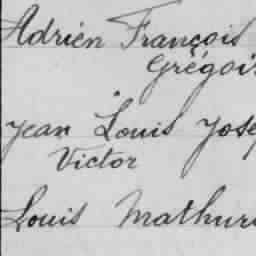 Adrien François
Grégoi
Jean Louis Jose
Victor
Louis Mathuri